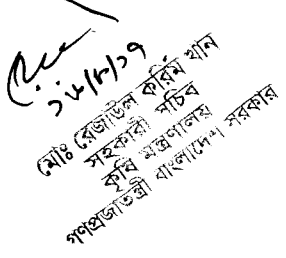 মোঃ রেজাউল করিম খান
সহকারী সচিব
কৃষি মন্ত্রণালয়
গণপ্রজাতন্ত্রী বাংলাদেশ সরকার